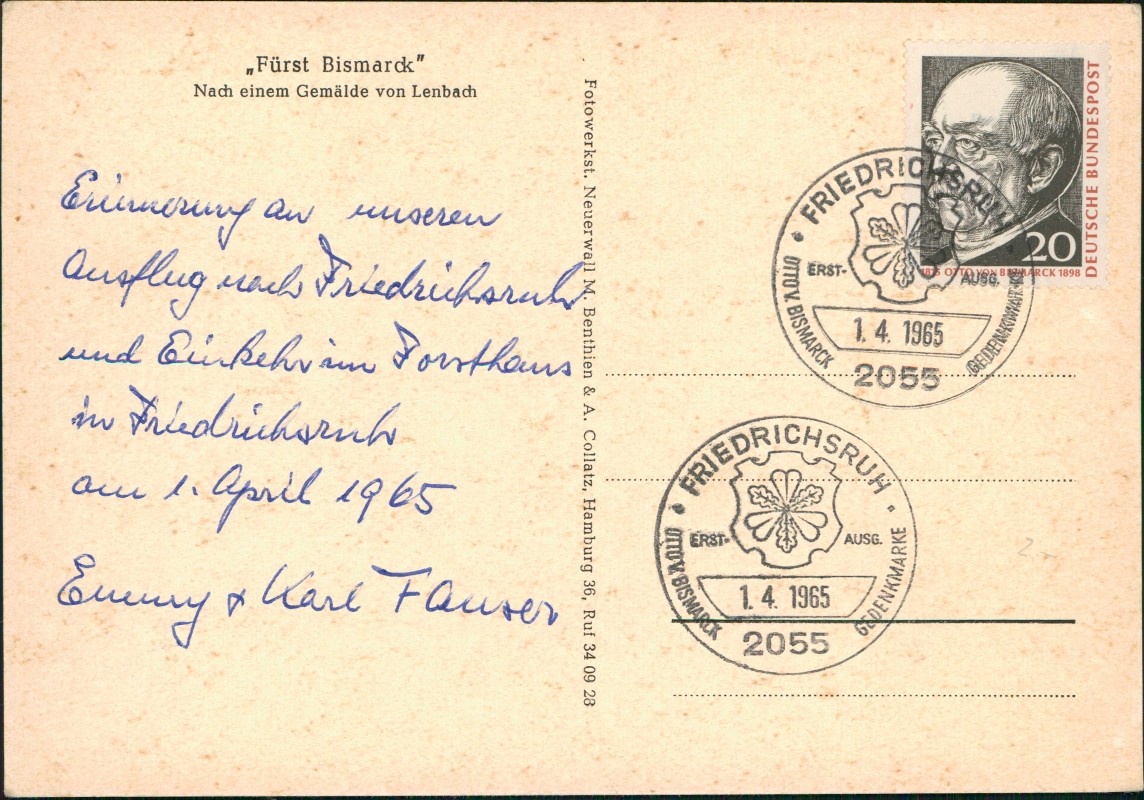 „Fürst Bismarck"
Nach einem Gemälde von Lenbach
Erinnerung an unseren
Ausflug nach Friedrichsruh
und Einkehr im Forsthaus
in Friedrichsruh
am 1. April 1965
Emmy + Karl Fauser
Fotowerkst. Neuerwall M. Benthien & A. Collatz, Hamburg 36, Ruf 34 09 28
DEUTSCHE BUNDESPOST
20
1815 OTTO VON BISMARCK 1898
FRIEDRICHSRUH
ERST- AUSG.
OTTO V. BISMARCK GEDENKMARKE
1. 4. 1965
2055
FRIEDRICHSRUH
ERST- AUSG.
OTTO V. BISMARCK GEDENKMARKE
1. 4. 1965
2055